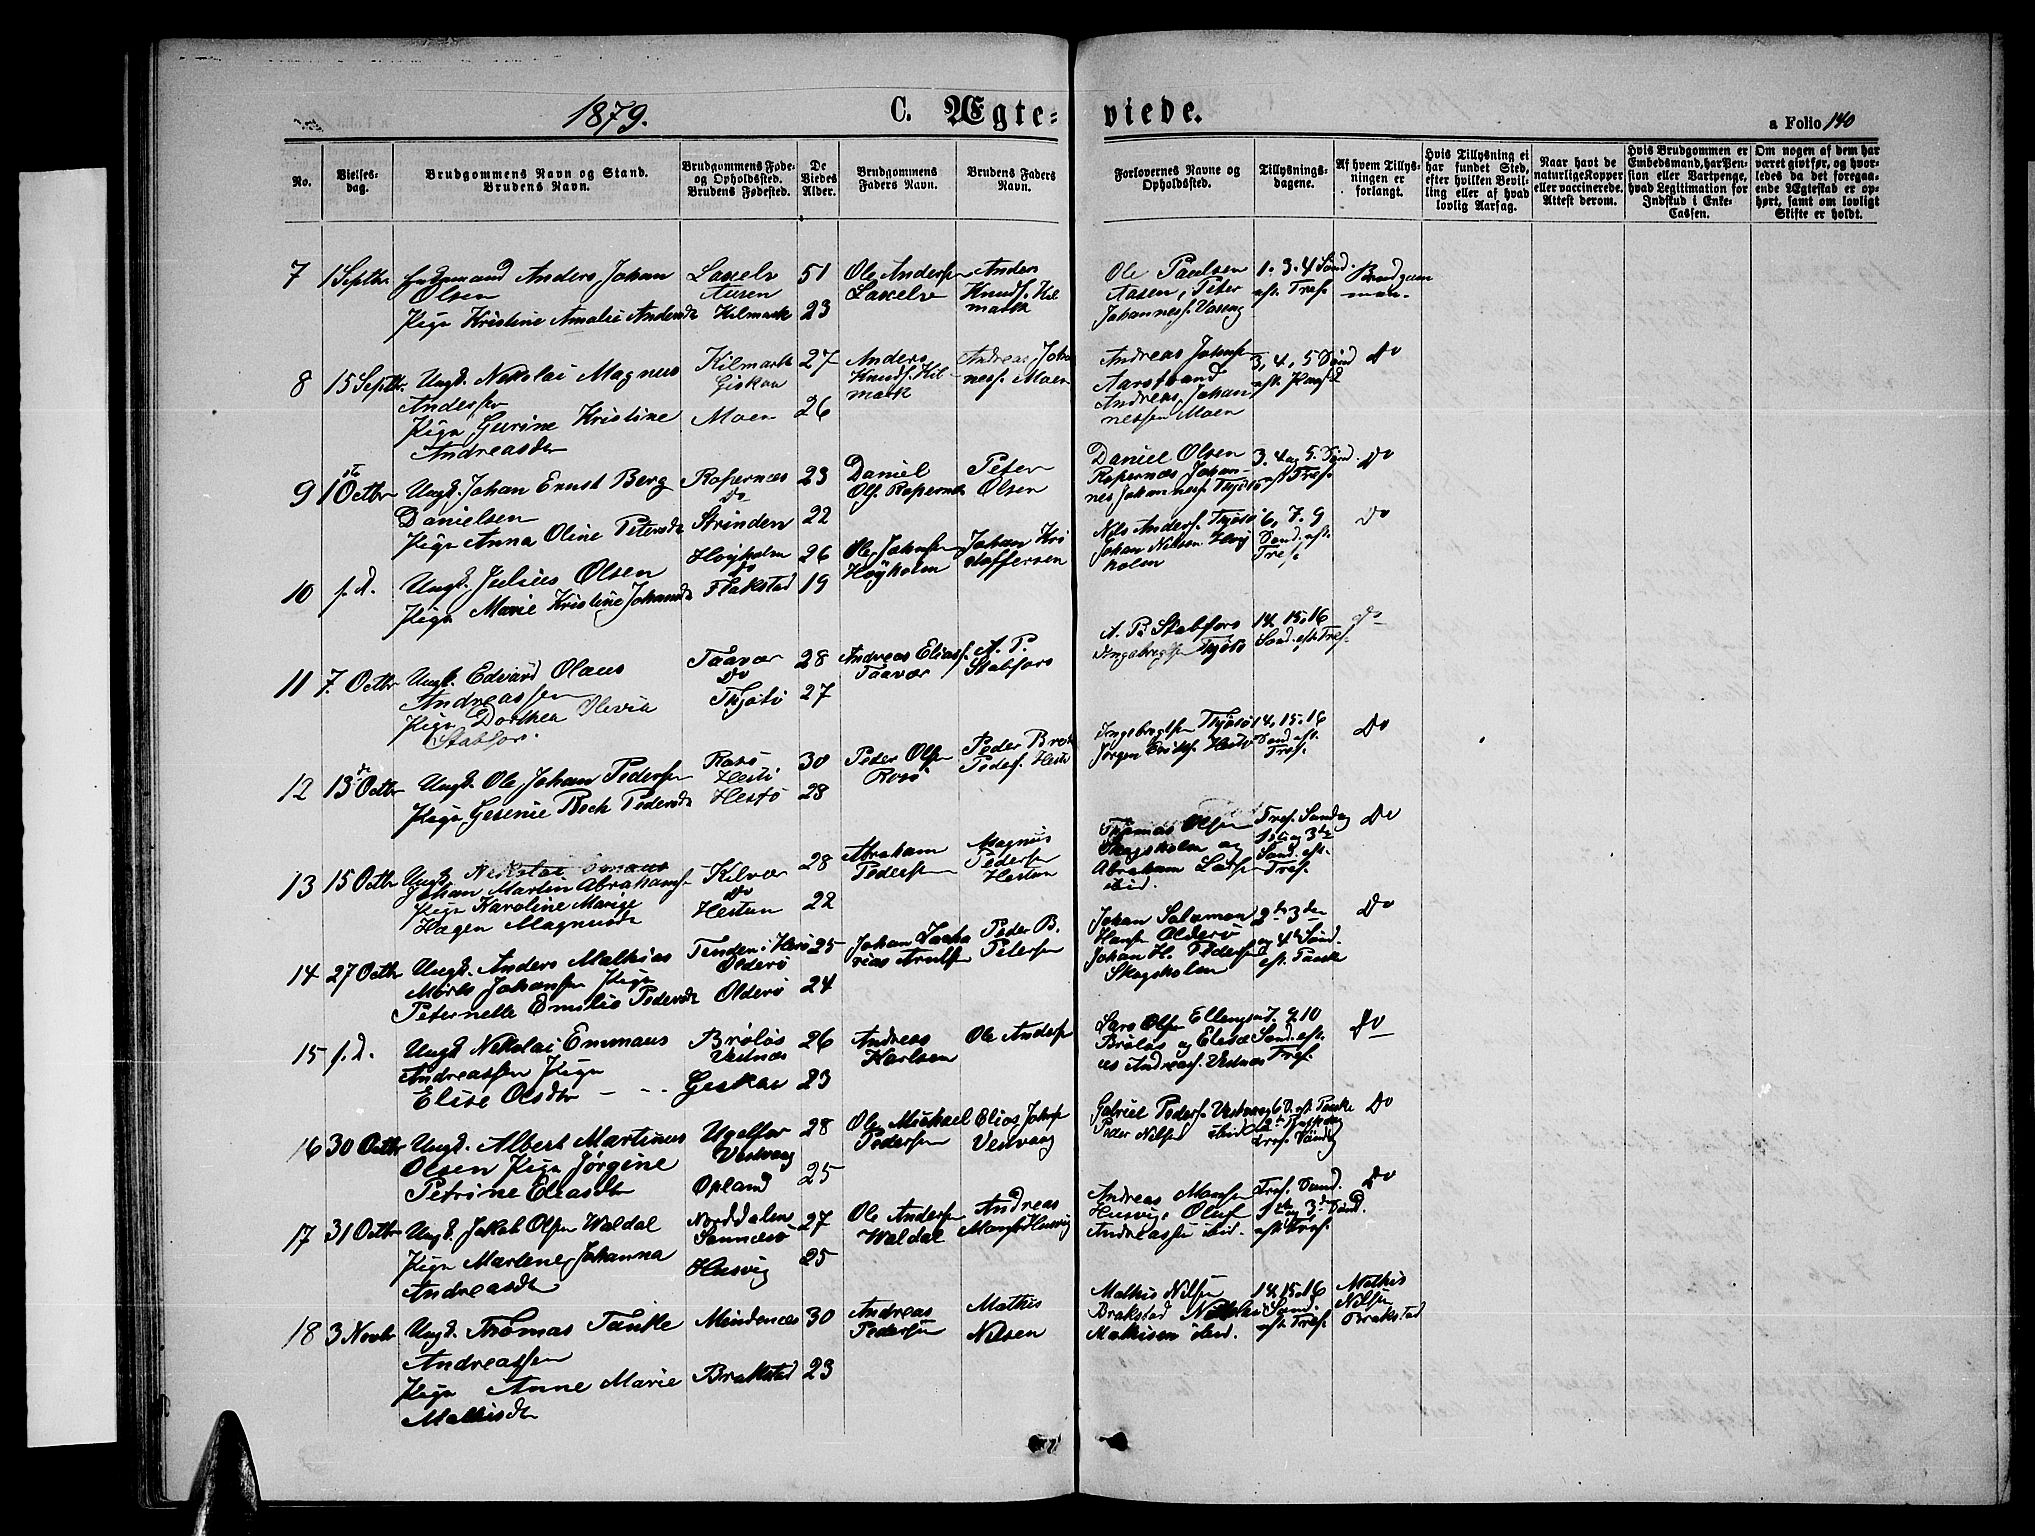 1879.
C. Ægte-
viede.
a Folio 140
No.
Vielses-
dag.
Brudgommens Navn og Stand.
Brudens Navn.
Brudgommens Føde-
og Opholdssted.
Brudens Fødested.
De
Viedes
Alder.
Brudgommens
Faders Navn.
Brudens Faders
Navn.
Forlovernes Navne og
Opholdssted.
Tillysnings-
dagene.
Af hvem Tillys-
ningen er
forlangt.
Hvis Tillysning ei
har
fundet Sted,
efter hvilken Bevil-
ling eller af hvad
lovlig Aarsag.
Naar havt de
naturlige Kopper
eller vaccinerede.
Attest derom.
Hvis Brudgommen er
Embedsmand, har Pen-
sion eller Vartpenge,
hvad Legitimation for
Indskud i Enke-
Cassen.
Om nogen af dem har
været givt før, og hvor-
ledes da det foregaa-
ende Ægteskab er op-
hørt, samt om lovligt
Skifte er holdt.
7 1 Septbr Anders Johan
Olsen
Pige Kristine Amalie Andersdr
Laxelv
Aasen
Kilmark
51
23
Ole Anders
Laxelv
Anders
Knuds. Kil
mark
Ole Paulsen
Aasen, Peter
Johanness.
1. 3. 4 Sønd.
eft. Tref.
Brudgom
men.
8 15 Septbr. Ungk. Nikolai Magnus
Anderssen
Pige Gurine Kristine
Andreasdtr
Kilmark
Giskaa
Moen
27
26
Anders
Knuds. Kil
mark
Andreas Joha
ness. Moen
Andreas Johns
Aarstrand
Andreas Johan
nessen Moen
3, 4, 5 Sønd
eft. Paaske
Do
9 1ste Octbr Ungk. Johan Ernst Berg
Danielsen
Pige Anna Oline Petersdr
Ropernæs
Do
Strinden
23
22
Daniel
Ols. Ropernæs
Peter
Olsen
Daniel Olsen
Ropernæs Johan-
nes Johanness. Tjøtø
3. 4 og 5. Sønd.
eft Tref.
Do
10 s. d. Ungk. Julius Olsen
Pige Marie Kristine Johansdr
Høyholm
Do
Flakstad
26
19
Ole Johnsen
Høyholm
Johan Kri
stoffersen
Nils Anders. Tjøtø
Johan Nilsen Høy
holm
6, 7. 9
Sønd. eft.
Tref.
Do
11 7. Octbr Ungk. Edvard Olaus
Andreassen
Pige Dorthea Olevia
Stabfors.
Taavær
Do
Thjøtø
28
27
Andreas Eliass.
Taavær
A. P.
Stabfors
A. P. Stabfors
Ingebregtsen Tjøtø
14, 15. 16
Sønd. eft. Tref.
Do
12 13de Octbr Ungk. Ole Johan Pedersen
Pige Gesenie Bech Pedersdr
Rosø
Hestø
Hestø
30
28
Peder Olsen
Rosø
Peder Brok
Peders. Hestø
Ingebregtsen Tjøtø
Jørgen Hestø
14, 15. 16
Sønd. eft.
Tref.
Do
13 15 Octbr Ungk. Nikolai Emaus
Johan Martin Abrahams.
Pige Karoline Marie
Hagen Magnusdr
Kilvær
Do
Hestun
28
22
Abraham
Pedersen
Magnus
Pedersen
Hestun
Thomas Olsen
Skogsholm og
Abraham
ibid.
Tref. Søndag
1ste og 3die
Sønd. eft.
Tref.
Do
14 27 Octbr Ungk. Anders Mathias
Mørk Johansen Pige
Peternelle Emilie Pedersdr
Tenden i Herø
Olderø
Olderø
25
24
Johan Zacha
rias
Peder B.
Petersen
Johan Salamon
Hans. Olderø
Johan H. Pedersen
Skogsholm
2den 3die
og 4de Sønd.
eft. Paaske
Do
15 s. d. Ungk Nikolai Emmaus
Andreassen Pige
Elise Olsdtr
Brøløs
Vestnæs
Geskaa
26
23
Andreas
Karlsen
Ole Anders
Lars Olsen
Brøløs og
Andreas. Vestnæs
7. 9. 10
Sønd. eft.
Tref.
Do
16 30 Octbr Ungk. Albert Martinus
Olsen Pige Jørgine
Petrine Eliasdtr
Vestvaag
Opland
28
25
Ole Michael
Pedersen
Elias Johns
Vestvaag
Gabriel Peders. Vestvaag
Peder Nilsen ibid
Do
17 31 Octbr Ungk. Jakob Olsen Waldal
Pige Marlene Johanna
Andreasdtr
Norddalen
Husvig
27
25
Ole Anders
Waldal
Andreas
Mons Husvig
Andreas Monsen
Husvig, Oluf
Andreassen ibid.
Tref. Sønd.
1ste og 3die Sønd.
eft Tref.
Do
18 3 Novbr Ungk. Thomas Tanke
Andreassen
Pige Anne Marie
Mathisdtr
Mindenæs
Brakstad
30
23
Andreas
Pedersen
Mathis
Nilsen
Mathis Nilsen
Brakstad Nikolai
Mathisen ibid.
14. 15. 16
Sønd.
eft Tref.
Mathis
Nilsen
Brakstad